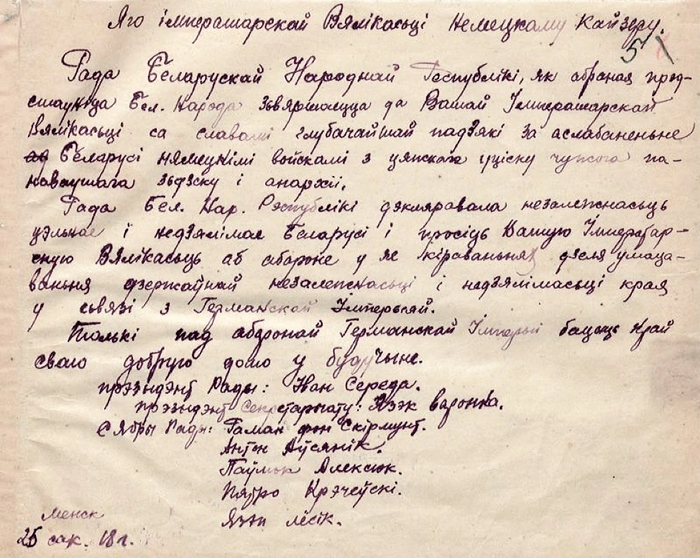 Яго імператарскай Вялікасьці Немецкаму Кайзеру.
5
Рада Беларускай Народнай Рэспублікі, як абраная прэд-
стаўніца Бел. Народа зьвяртаецца да Вашай Імператарскай
Вялікасьці са словамі глубачайшай падзякі за аслабаненьне
Беларусі нямецкімі войскамі з цяжкага уціску чужого па-
наваўшага зьдзеку і анархіі.
Рада Бел. Нар. Рэспублікі дэкляравала незалежнасьць
цэльнае і недзялімае Беларусі і просіць Вашую Імператар-
скую Вялікасьць аб абароне у яе кіраваньнях дзеля умаца-
ваньня дзержаўнай незалежнасьці і надзялімасьці края
у сьвязі з Германскай Імперыяй.
Толькі пад абаронай Германскай Імперыі бачыць Край
сваю добрую долю у будучыне.
прэзыдэнт Рады: Іван Середа.
прэзыдэнт Секретарыату: Язэк Варонка.
Сябры Рады: Раман фон Скірмунт.
Антон Аўсянік.
Паўлюк Алексюк.
Пятро Крэчеўскі.
Язэп Лёсік.
Менск
25 сак. 18 г.